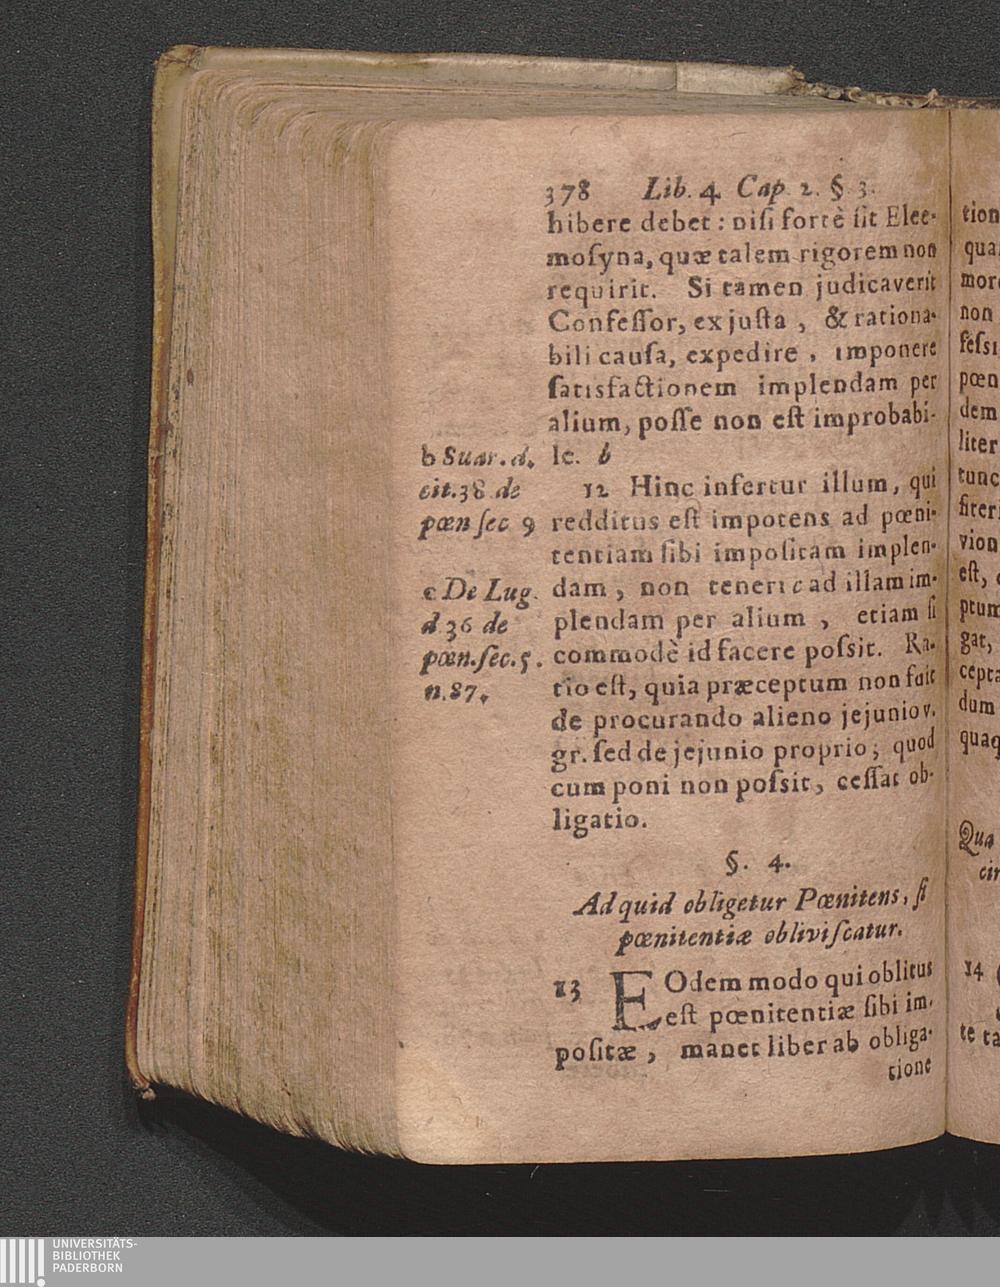 378 Lib. 4 Cap. 2. § 3.
hibere debet: nisi fortè sit Elee-
mosyna, quæ talem rigorem non
requirit. Si tamen judicaverit
Confessor, ex justa, & rationa-
bili causa, expedire, imponere
satisfactionem implendam per
alium, posse non est improbabi-
le. b
b Suar. d.
cit. 38 de
pœn sec 9
12 Hinc infertur illum, qui
redditus est impotens ad pœni-
tentiam sibi impositam implen-
dam, non teneri c ad illam im-
plendam per alium, etiam si
commodè id facere possit. Ra-
tio est, quia præceptum non fuit
de procurando alieno jejunio v.
gr. sed de jejunio proprio; quod
cum poni non possit, cessat ob-
ligatio.
c De Lug.
d 36 de
pœn. sec. 5.
n. 87.
§. 4.
Ad quid obligetur Pœnitens, si
pœnitentiæ obliviscatur.
13 EOdem modo qui oblitus
est pœnitentiæ sibi im-
positæ, manet liber ab obliga-
tione
tion
qua
more
non
fessi
pœn
dem
liter
tunc
fiteri
vion
est,
ptum
gat,
cepta
dum
quaq
Qua
cir
14
te ta
UNIVERSITÄTS-
BIBLIOTHEK
PADERBORN